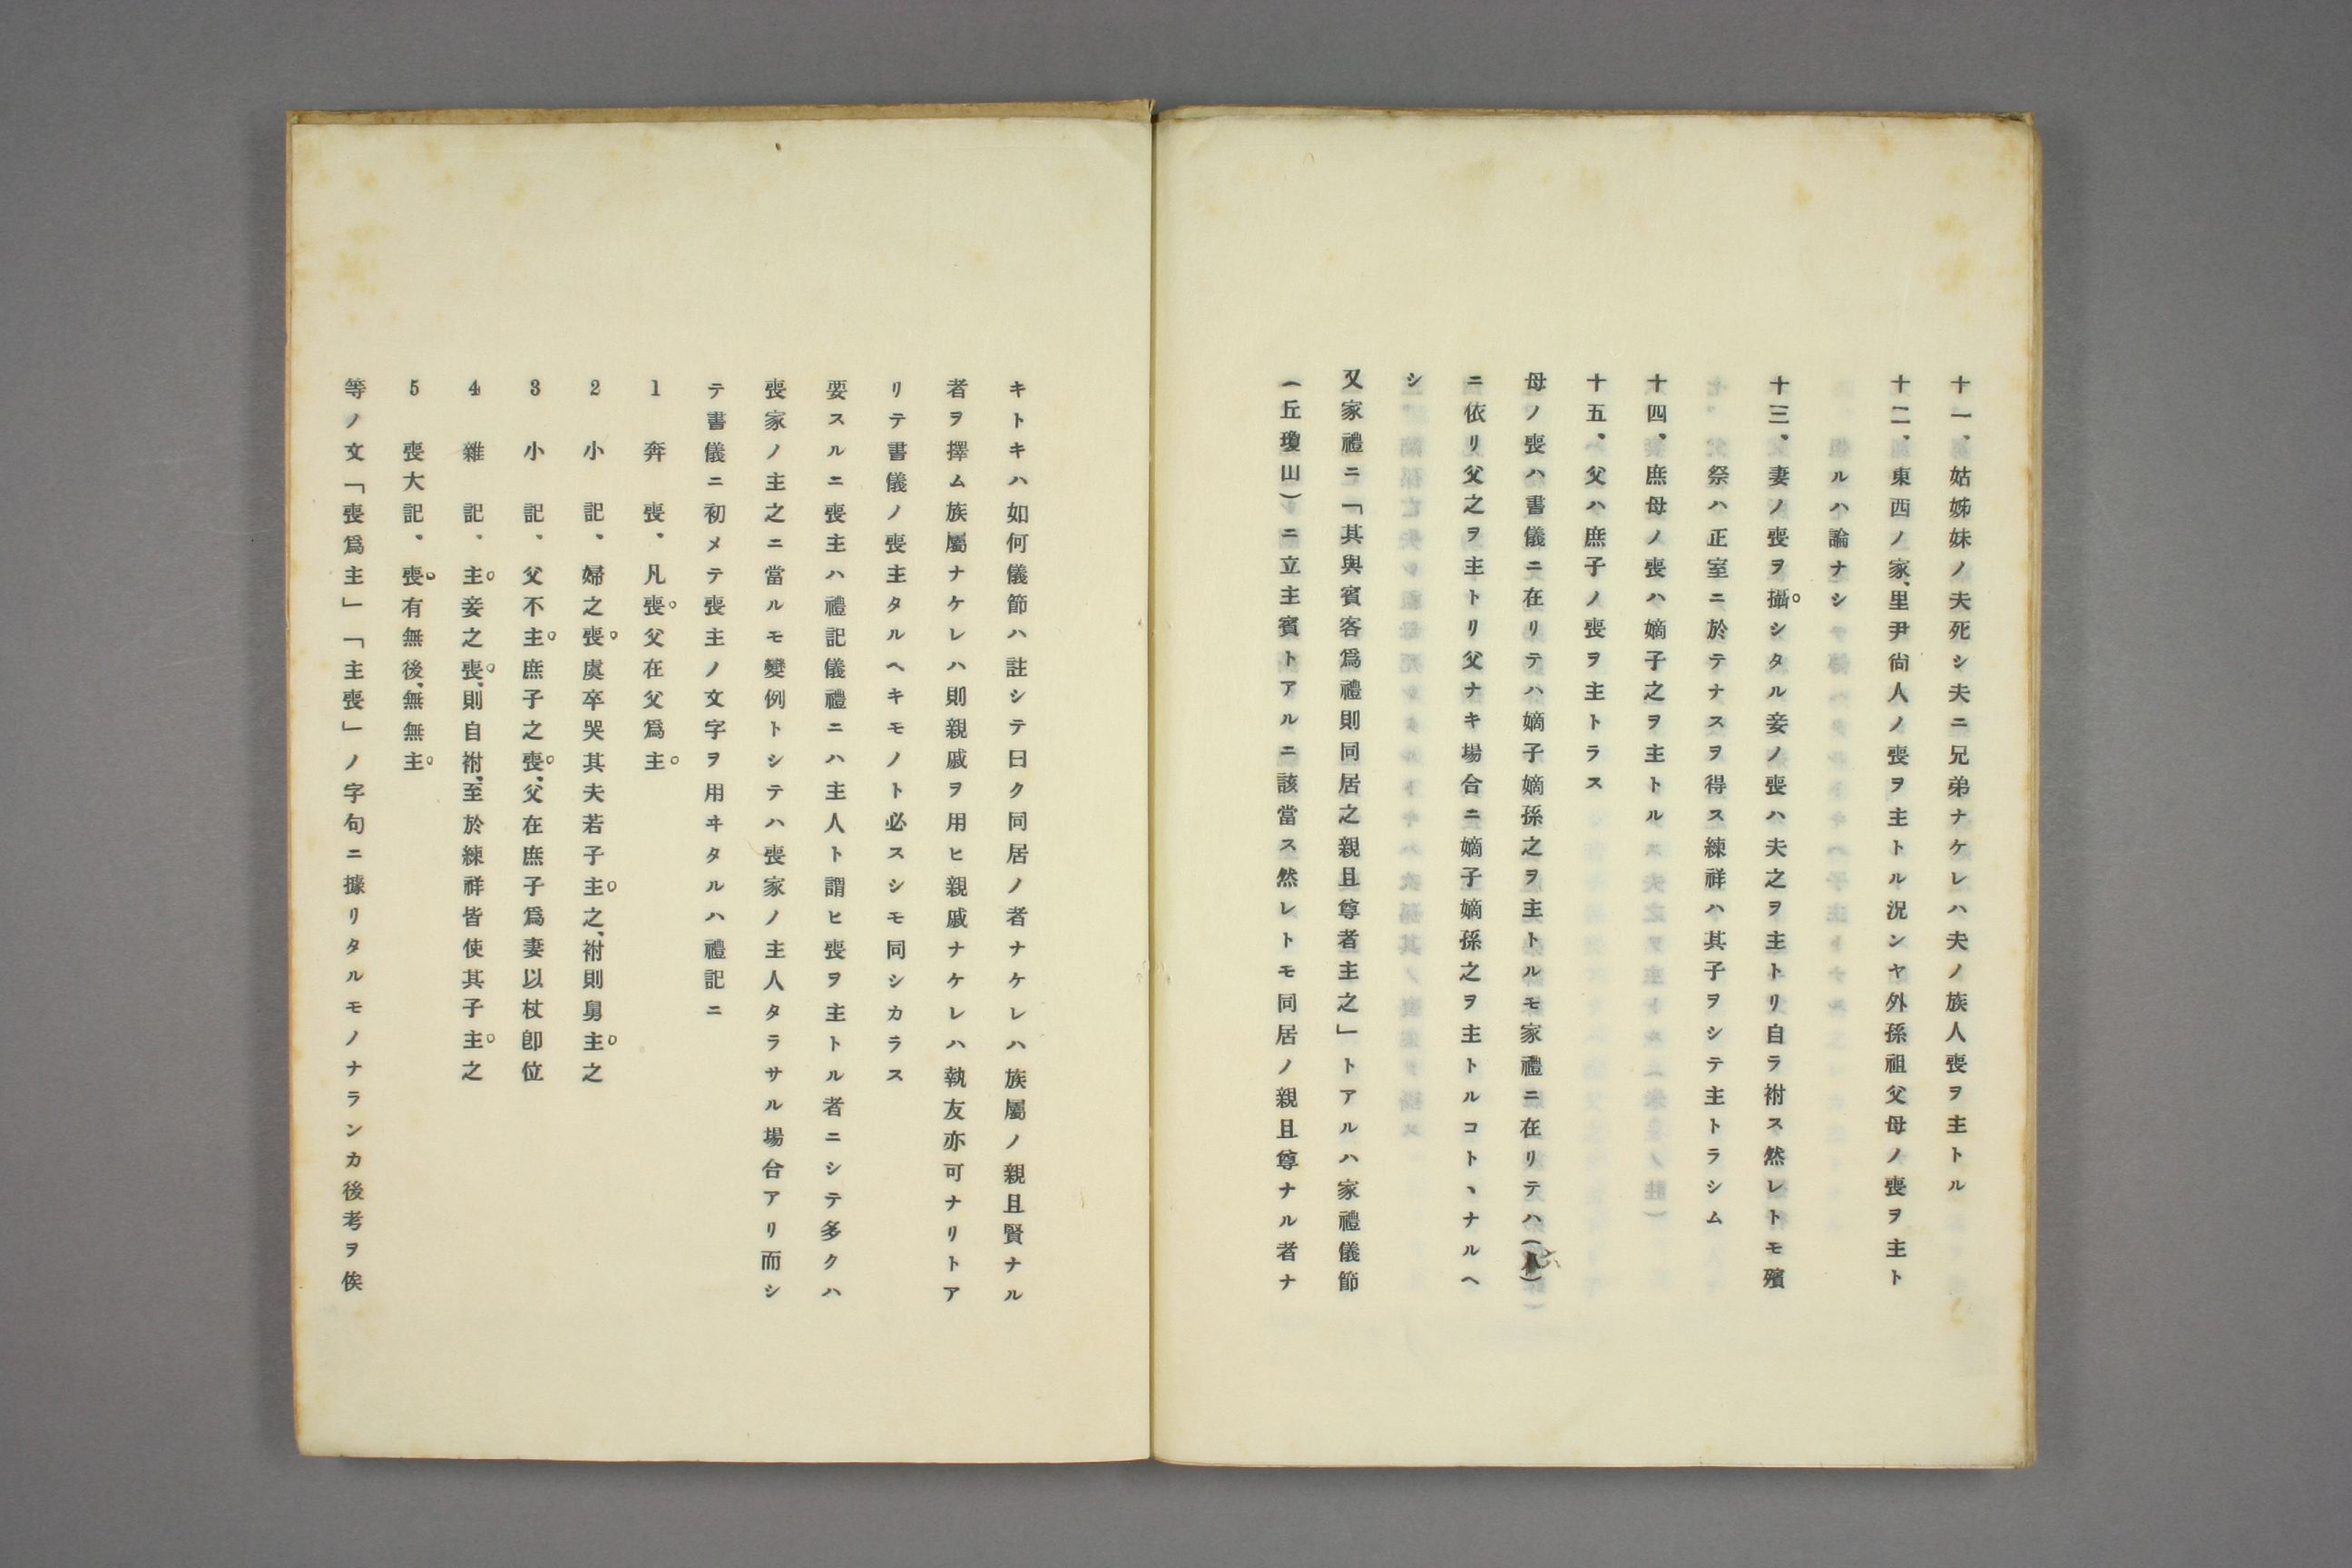 十一、姑姊妹ノ夫死シ夫ニ兄弟ナケレハ夫ノ族人喪ヲ主トル
十二、東西ノ家、里尹尙人ノ喪ヲ主トル況ンヤ外孫祖父母ノ喪ヲ主ト
ルハ論ナシ
十三、妻ノ喪ヲ攝シタル妾ノ喪ハ夫之ヲ主トリ自ラ祔ス然レトモ殯
祭ハ正室ニ於テナスヲ得ス練祥ハ其子ヲシテ主トラシム
十四、庶母ノ喪ハ嫡子之ヲ主トル
十五、父ハ庶子ノ喪ヲ主トラス
母ノ喪ハ書儀ニ在リテハ嫡子嫡孫之ヲ主トルモ家禮ニ在リテハ(八)
ニ依リ父之ヲ主トリ父ナキ場合ニ嫡子嫡孫之ヲ主トルコトヽナルヘ
シ
又家禮ニ「其與賓客爲禮則同居之親且尊者主之」トアルハ家禮儀節
(丘瓊山)ニ立主賓トアルニ該當ス然レトモ同居ノ親且尊ナル者ナ
キトキハ如何儀節ハ註シテ曰ク同居ノ者ナケレハ族屬ノ親且賢ナル
者ヲ擇ム族屬ナケレハ則親戚ヲ用ヒ親戚ナケレハ執友亦可ナリトア
リテ書儀ノ喪主タルヘキモノト必スシモ同シカラス
要スルニ喪主ハ禮記儀禮ニハ主人ト謂ヒ喪ヲ主トル者ニシテ多クハ
喪家ノ主之ニ當ルモ變例トシテハ喪家ノ主人タラサル場合アリ而シ
テ書儀ニ初メテ喪主ノ文字ヲ用ヰタルハ禮記ニ
1 奔喪、凡喪父在父爲主
2 小記、婦之喪虞卒哭其夫若子主之、祔則舅主之
3 小記、父不主庶子之喪、父在庶子爲妻以杖卽位
4 雜記、主妾之喪、則自祔、至於練祥皆使其子主之
5 喪大記、喪有無後、無無主
等ノ文「喪爲主」「主喪」ノ字句ニ據リタルモノナランカ後考ヲ俟